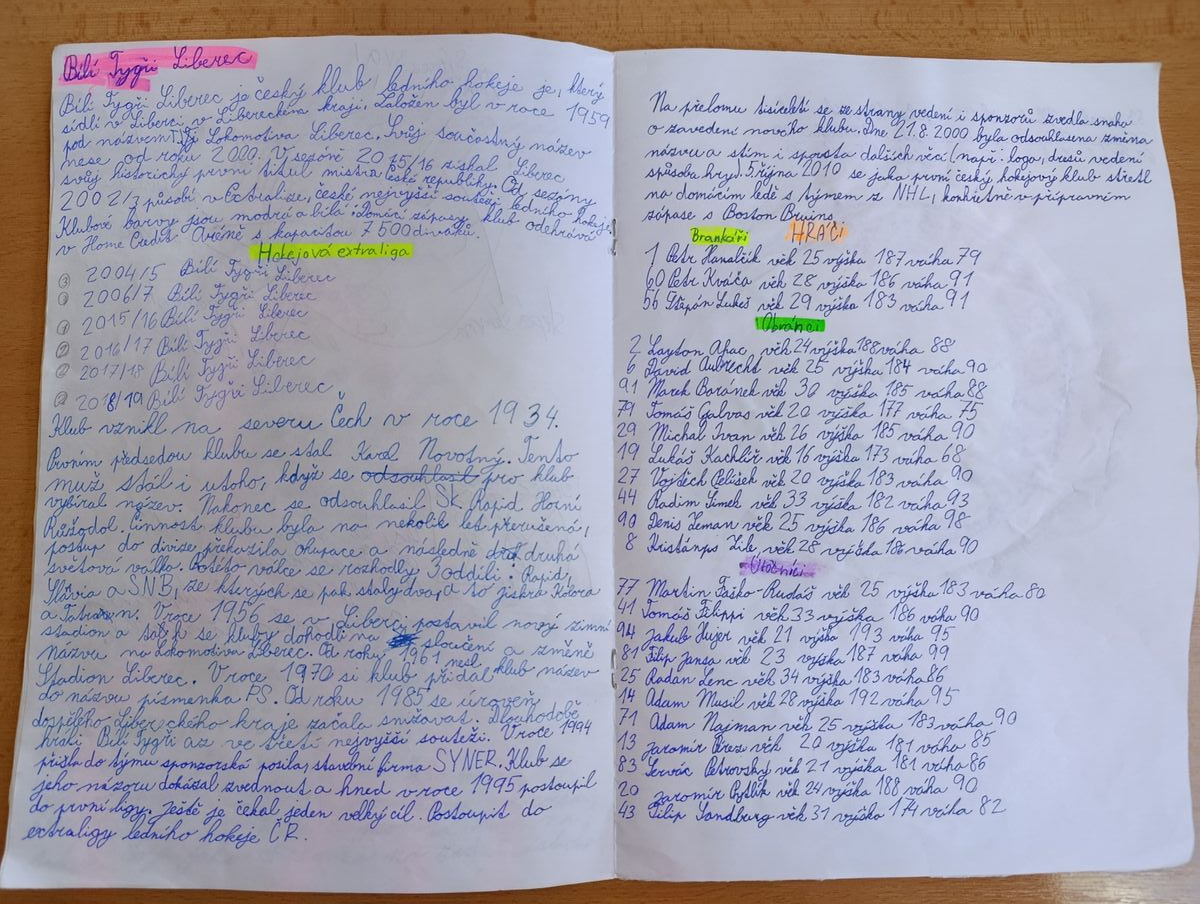 Bílí Tygři Liberec
Bílí Tygři Liberec je český klub ledního hokeje je, který
sídlí v Liberci, v Libereckém kraji, Založen byl v roce 1959
pod názvem TJ Lokomotiva Liberec. Svůj součastný název
nese od roku 2000. V sezóně 2015/16 získal Liberec
svůj historický první titul mistra České republiky. Od sezóny
2002/3 působí v Extralize, české nejvyšší soutěži ledního hokeje.
Klubové barvy jsou modrá a bílá. Domácí zápasy klub odehrává
v Home Credit Aréně s kapacitou 7 500 diváků.
Hokejová extraliga
③ 2004/5 Bílí Tygři Liberec
③ 2006/7 Bílí Tygři Liberec
① 2015/16 Bílí Tygři Liberec
② 2016/17 Bílí Tygři Liberec
② 2017/18 Bílí Tygři Liberec
② 2018/19 Bílí Tygři Liberec
Klub vznikl na severu Čech v roce 1934.
Prvním předsedou klubu se stal Karel Novotný. Tento
muž stál i u toho, když se odsouhlasil pro klub
vybíral název. Nakonec se odsouhlasil SK Rapid Horní
Růžodol. Činnost klubu byla na nekolik let přerušená,
postup do divize překazila okupace a následně druh druhá
světová válka. Poteto válce se rozhodly 3 oddíli: Rapid,
Slávia a SNB, ze kterých se pak staly dva, a to jiskra Kolora
a Tatran. V roce 1956 se v Liberci postavil nový zimní
stadion a tak se kluby dohodli na sloučení a změně
názvu na Lokomotiva Liberec. Od roku 1961 nesl klub název
Stadion Liberec. V roce 1970 si klub přidal
do názvu písmenka PS. Od roku 1985 se úroveň
dospělého Libereckého kraje začala snižovat. Dlouhodobě
hráli Bílí Tygři až ve třetí nejvyšší soutěži. V roce 1994
přišla do týmu sponzorská posila, stavební firma SYNER. Klub se
jeho názoru dokázal zvednout a hned v roce 1995 postoupil
do první ligy. Ještě je čekal jeden velký cíl. Postoupit do
extraligy ledního hokeje ČR.
Na přelomu tisíciletí se ze strany vedení i sponzorů zvedla snaha
o zavedení nového klubu. Dne 21.8. 2000 byla odsouhlasena změna
názvu a stím i spousta dalších věcí (např: loga, dresů vedení
způsoba hry). 5. října 2010 se jako první český hokejový klub střetl
na domácím ledě s týmem z NHL, konkrétně v přípravném
zápase s Boston Bruins.
Brankáři HRÁČI
1 Petr Hanalčík věk 25 výška 187 váha 79
60 Petr Kváča věk 28 výška 186 váha 91
56 Štěpán Lukeš věk 29 výška 183 váha 91
Obránci
2 Layton Ahac věk 24 výška 188 váha 88
6 David Aubrecht věk 25 výška 184 váha 90
91 Marek Baránek věk 30 výška 185 váha 88
79 Tomáš Galvas věk 20 výška 177 váha 75
29 Michal Ivan věk 26 výška 185 váha 90
19 Lukáš Kachlíř věk 16 výška 173 váha 68
27 Vojtěch Pelíšek věk 20 výška 183 váha 90
44 Radim Šimek věk 33 výška 182 váha 93
90 Denis Zeman věk 25 výška 186 váha 98
8 Kristánps Zīle věk 28 výška 186 váha 90
Útočníci
77 Martin Faško-Rudáš věk 25 výška 183 váha 80
41 Tomáš Filippi věk 33 výška 186 váha 90
94 Jakub Hujer věk 21 výška 193 váha 95
81 Filip Jansa věk 23 výška 187 váha 99
25 Radan Lenc věk 34 výška 183 váha 86
14 Adam Musil věk 28 výška 192 váha 95
71 Adam Najman věk 25 výška 183 váha 90
13 Jaromír Péraz věk 20 výška 181 váha 85
83 Servác Petrovský věk 21 výška 181 váha 86
20 Jaromír Pytlík věk 24 výška 188 váha 90
43 Filip Sandburg věk 31 výška 174 váha 82